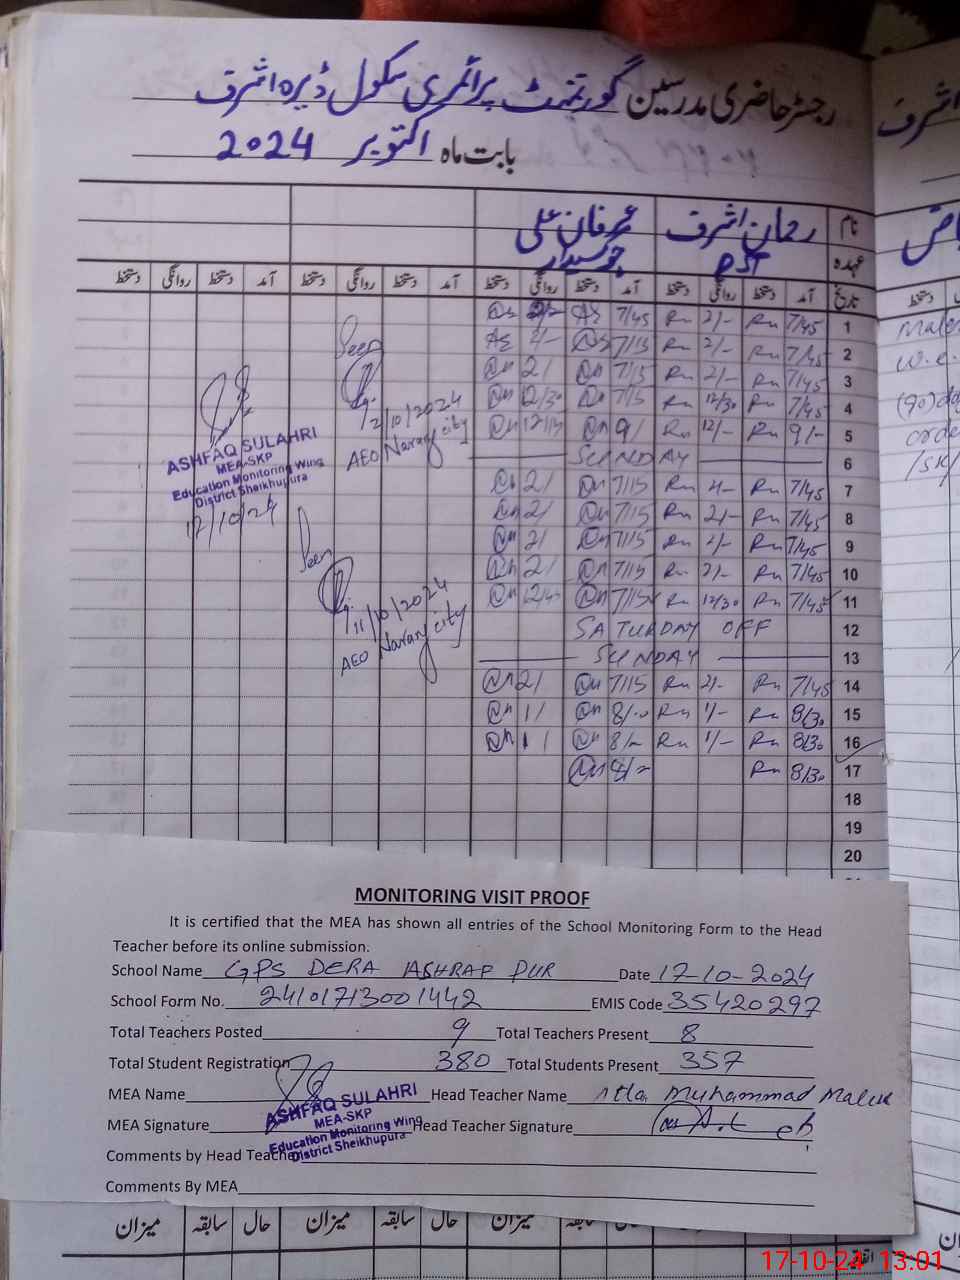 رجسٹر حاضری مدرسین گورنمنٹ پرائمری سکول ڈیرہ اشرف
بابت ماہ اکتوبر 2024
نام رحمان اشرف عرفان علی
عہدہ PST چوکیدار
تاریخ آمد دستخط روانگی دستخط آمد دستخط روانگی دستخط آمد دستخط روانگی دستخط آمد دستخط روانگی دستخط
1 7/45 Rn 2/- Rn 7/45
2 7/45 Rn 2/- Rn 7/15
3 7/45 Rn 2/- Rn 7/15 2/
4 7/45 Rn 12/30 Rn 7/15 12/30
5 9/- Rn 12/- Rn 9/
6 SUNDAY
7 7/45 Rn 2/- Rn 7/15 2/
8 7/45 Rn 2/- Rn 7/15 2/
9 7/45 Rn 2/- Rn 7/15 2/
10 7/45 Rn 2/- Rn 7/15 2/
11 7/45 Rn 12/30 Rn 7/15
12 SATURDAY OFF
13 SUNDAY
14 7/45 Rn 2/- Rn 7/15 2/
15 8/30 Rn 1/- Rn 8/- 1/
16 8/30 Rn 1/- Rn 8/- 1/
17 8/30 Rn 8/-
18
19
20
Seen
2/10/2024
AEO Narang city
ASHFAQ SULAHRI
MEA-SKP
Education Monitoring Wing
District Sheikhupura
17/10/24
Seen
11/10/2024
AEO Narang city
MONITORING VISIT PROOF
It is certified that the MEA has shown all entries of the School Monitoring Form to the Head
Teacher before its online submission.
School Name GPS DERA ASHRAF PUR Date 17-10-2024
School Form No. 24101713001442 EMIS Code 35420297
Total Teachers Posted 9 Total Teachers Present 8
Total Student Registration 380 Total Students Present 357
MEA Name Head Teacher Name Muhammad Malik
ASHFAQ SULAHRI
MEA-SKP
Education Monitoring Wing
District Sheikhupura
MEA Signature Head Teacher Signature
Comments by Head Teacher
Comments By MEA
میزان سابقہ حال میزان سابقہ حال میزان سابقہ حال
17-10-24 13:01